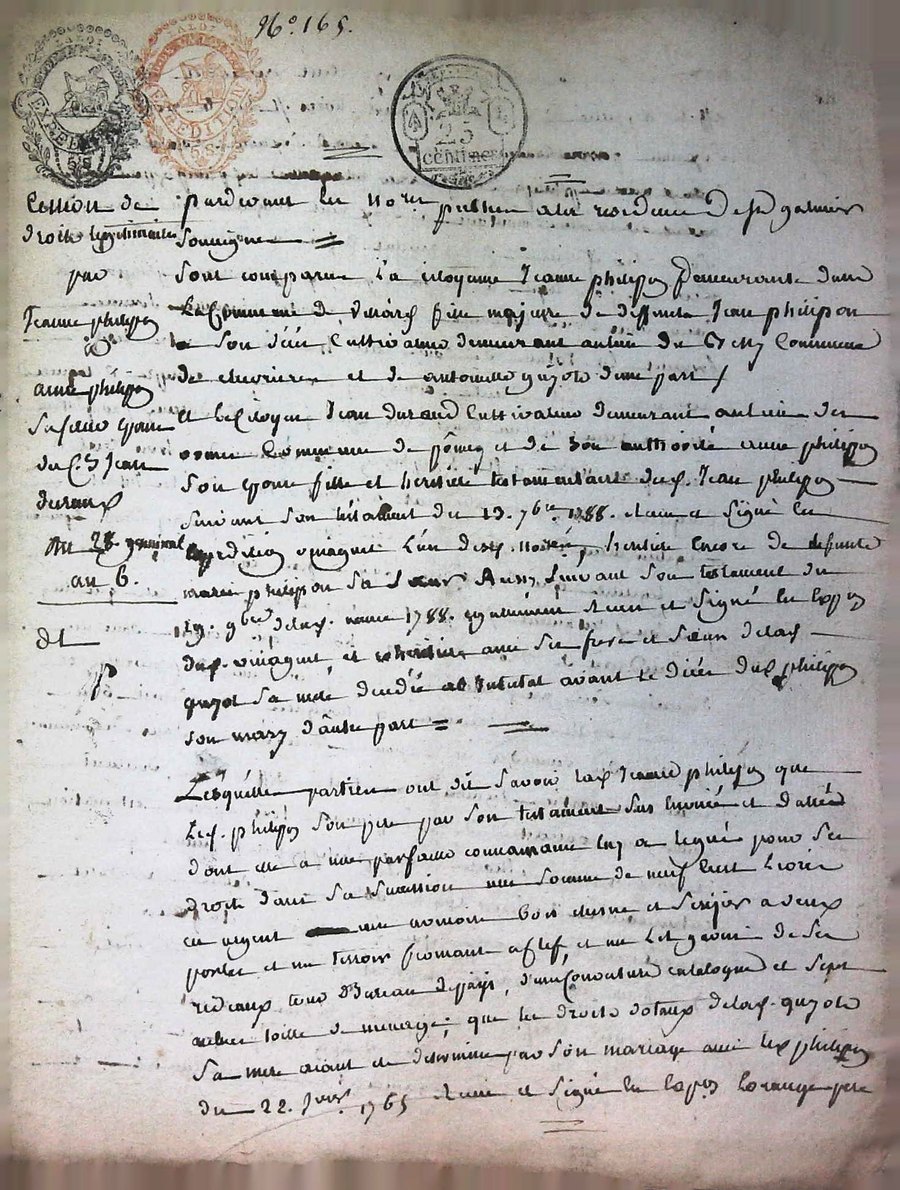 N.o 165.
LA LOI
EXPEDITION
5 S
LA LOI
EXPEDITION
5 S
25
centimes
Cession de
droits légitimaires
par
Jeanne philipon
à
anne philipon
Sa sœur épouse
du C.en Jean
durand
Du 28 germinal
an 6.
dt
p
pardevant les no.res publics à la résidence de garnier
Soussignés
Sont comparue La citoyenne Jeanne philipon Demeurante dans
La Commune de fille majeure de deffunts Jean philipon
Son Cultivateur demeurant au lieu du Commune
de chevrieres et de antoinette guyot d'une part /
et le Citoyen Jean durand Cultivateur demeurant au lieu des
Commune de et de Son authorité anne philipon
Son épouse fille et heritière testamentaire dud. Jean philipon
Suivant Son testament du 13. 7bre 1788. Recu et Signé en
expedition l'un desd. notres, heritière encore de defunte
marie philipon Sa Sœur Aussy Suivant Son testament du
19. 9bre de lad. année 1788. egalement Recu et Signé en Copie
dud. et heritière avec Ses frere et Sœur de lad.
guyot Sa mere decedée ab intestat avant le décès dud. philipon
Son mary d'autre part
Lesquelles parties ont dit Savoir lad. Jeanne philipon que
Led. philipon Son pere par Son testament Sus Enoncé et datté
dont elle a une parfaite connaissance luy a legué pour Ses
droits dans Sa Succession une Somme de neuf Cent Livres
en argent une armoire bois chesne et a deux
portes et un fermant a clef, et un Lit garni de Ses
rideaux de pays, d'une Couverture catalogne et Sept
aulnes toille de menage; que les droits dotaux de lad. guyot
Sa mere aiant été determinés par Son mariage avec led. philipon
du 22. Janv.r 1765 Recu et Signé en Copie Lorange pere